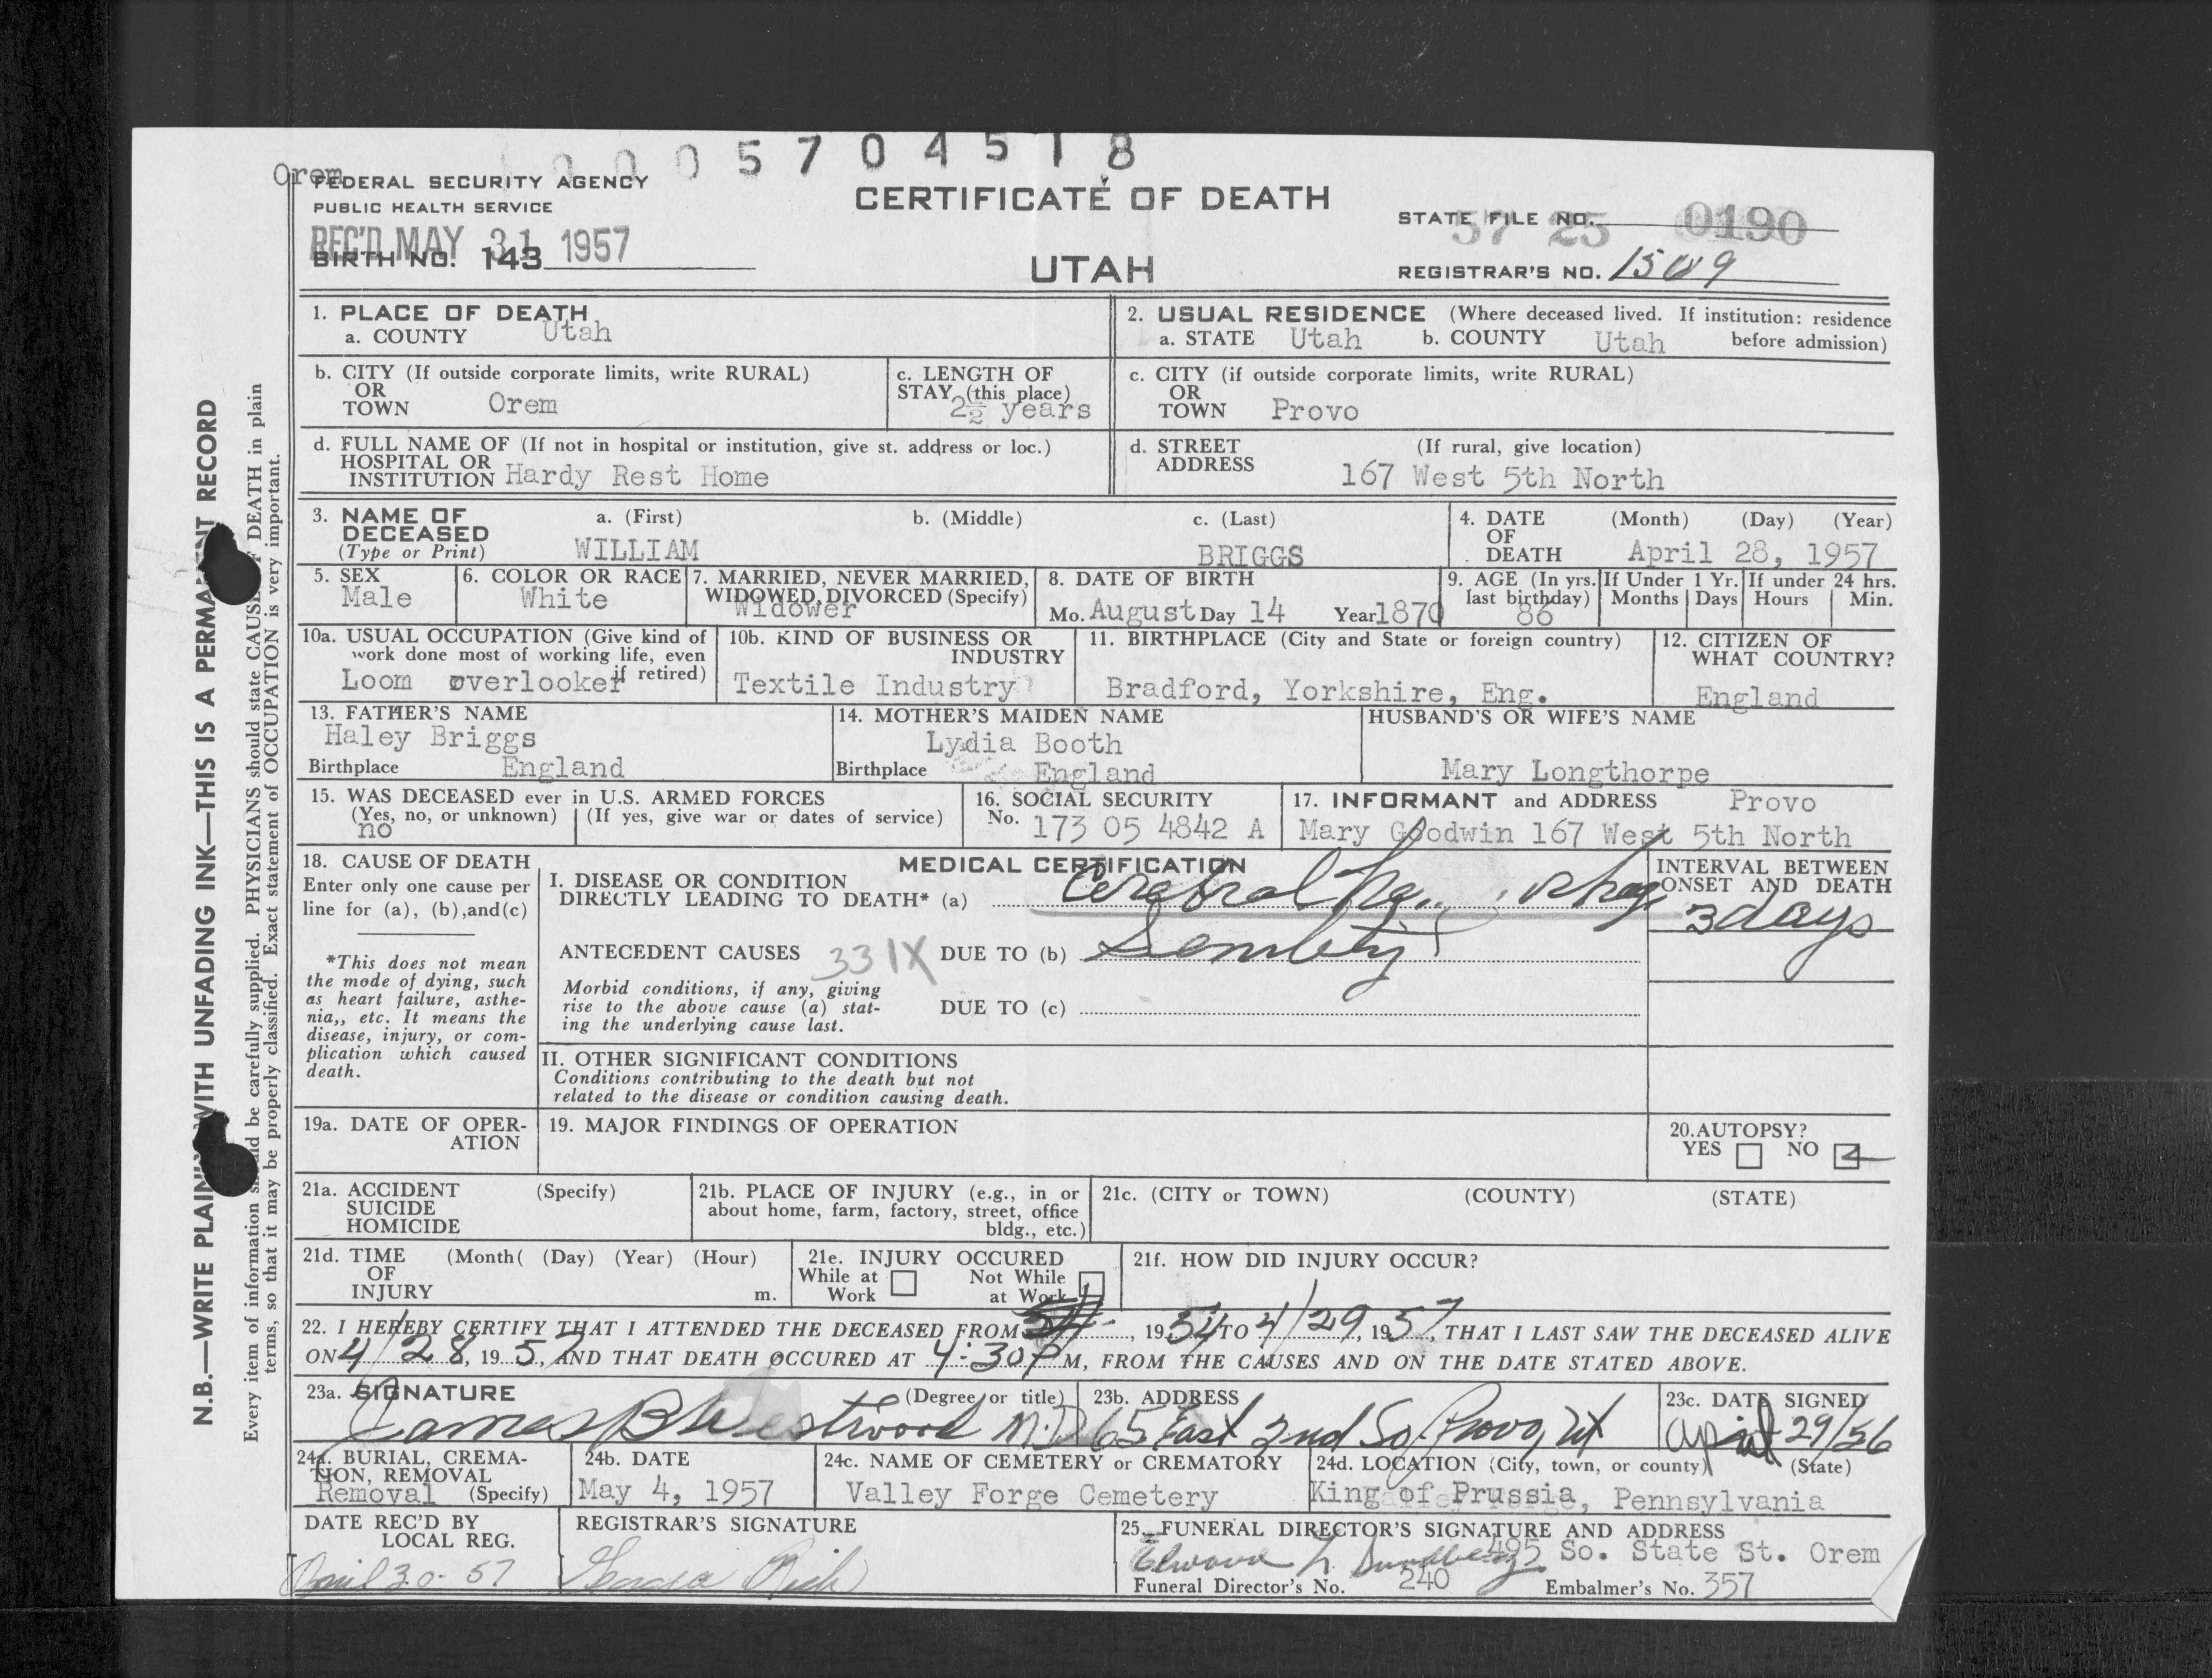 0005704518
Orem
FEDERAL SECURITY AGENCY
PUBLIC HEALTH SERVICE
CERTIFICATE OF DEATH
STATE FILE NO. 57 25 0190
REC'D MAY 31 1957
BIRTH NO. 143
UTAH
REGISTRAR'S NO. 1509
1. PLACE OF DEATH
a. COUNTY Utah
2. USUAL RESIDENCE (Where deceased lived. If institution: residence
a. STATE Utah b. COUNTY Utah before admission)
b. CITY (If outside corporate limits, write RURAL)
OR
TOWN Orem
c. LENGTH OF
STAY (this place)
2½ years
c. CITY (if outside corporate limits, write RURAL)
OR
TOWN Provo
d. FULL NAME OF (If not in hospital or institution, give st. address or loc.)
HOSPITAL OR
INSTITUTION Hardy Rest Home
d. STREET (If rural, give location)
ADDRESS
167 West 5th North
3. NAME OF
DECEASED
(Type or Print)
a. (First) b. (Middle) c. (Last)
WILLIAM BRIGGS
4. DATE (Month) (Day) (Year)
OF
DEATH April 28, 1957
5. SEX
Male
6. COLOR OR RACE
White
7. MARRIED, NEVER MARRIED,
WIDOWED, DIVORCED (Specify)
Widower
8. DATE OF BIRTH
Mo. August Day 14 Year 1870
9. AGE (In yrs.
last birthday)
86
If Under 1 Yr.
Months Days
If under 24 hrs.
Hours Min.
10a. USUAL OCCUPATION (Give kind of
work done most of working life, even
if retired)
Loom overlooker
10b. KIND OF BUSINESS OR
INDUSTRY
Textile Industry
11. BIRTHPLACE (City and State or foreign country)
Bradford, Yorkshire, Eng.
12. CITIZEN OF
WHAT COUNTRY?
England
13. FATHER'S NAME
Haley Briggs
Birthplace England
14. MOTHER'S MAIDEN NAME
Lydia Booth
Birthplace England
HUSBAND'S OR WIFE'S NAME
Mary Longthorpe
15. WAS DECEASED ever in U.S. ARMED FORCES
(Yes, no, or unknown) (If yes, give war or dates of service)
no
16. SOCIAL SECURITY
No. 173 05 4842 A
17. INFORMANT and ADDRESS Provo
Mary Goodwin 167 West 5th North
18. CAUSE OF DEATH
Enter only one cause per
line for (a), (b),and(c)
*This does not mean
the mode of dying, such
as heart failure, asthe-
nia,, etc. It means the
disease, injury, or com-
plication which caused
death.
MEDICAL CERTIFICATION
I. DISEASE OR CONDITION
DIRECTLY LEADING TO DEATH* (a) Cerebral
INTERVAL BETWEEN
ONSET AND DEATH
3 days
ANTECEDENT CAUSES 331X DUE TO (b)
Morbid conditions, if any, giving
rise to the above cause (a) stat-
ing the underlying cause last.
DUE TO (c)
II. OTHER SIGNIFICANT CONDITIONS
Conditions contributing to the death but not
related to the disease or condition causing death.
19a. DATE OF OPER-
ATION
19. MAJOR FINDINGS OF OPERATION
20.AUTOPSY?
YES NO
21a. ACCIDENT (Specify)
SUICIDE
HOMICIDE
21b. PLACE OF INJURY (e.g., in or
about home, farm, factory, street, office
bldg., etc.)
21c. (CITY or TOWN) (COUNTY) (STATE)
21d. TIME (Month( (Day) (Year) (Hour)
OF
INJURY m.
21e. INJURY OCCURED
While at Not While
Work at Work
21f. HOW DID INJURY OCCUR?
22. I HEREBY CERTIFY THAT I ATTENDED THE DECEASED FROM , 19 54 TO 4/29, 1957, THAT I LAST SAW THE DECEASED ALIVE
ON 4/28, 1957, AND THAT DEATH OCCURED AT 4:30 P M, FROM THE CAUSES AND ON THE DATE STATED ABOVE.
23a. SIGNATURE (Degree or title)
James B Westwood M.D
23b. ADDRESS
65 East 2nd So. Provo, Ut
23c. DATE SIGNED
April 29/56
24a. BURIAL, CREMA-
TION, REMOVAL
Removal (Specify)
24b. DATE
May 4, 1957
24c. NAME OF CEMETERY or CREMATORY
Valley Forge Cemetery
24d. LOCATION (City, town, or county) (State)
King of Prussia, Pennsylvania
DATE REC'D BY
LOCAL REG.
April 30-57
REGISTRAR'S SIGNATURE
25. FUNERAL DIRECTOR'S SIGNATURE AND ADDRESS
495 So. State St. Orem
Funeral Director's No. 240 Embalmer's No. 357
N.B.—WRITE PLAINLY WITH UNFADING INK—THIS IS A PERMANENT RECORD
Every item of information should be carefully supplied. PHYSICIANS should state CAUSE OF DEATH in plain
terms, so that it may be properly classified. Exact statement of OCCUPATION is very important.